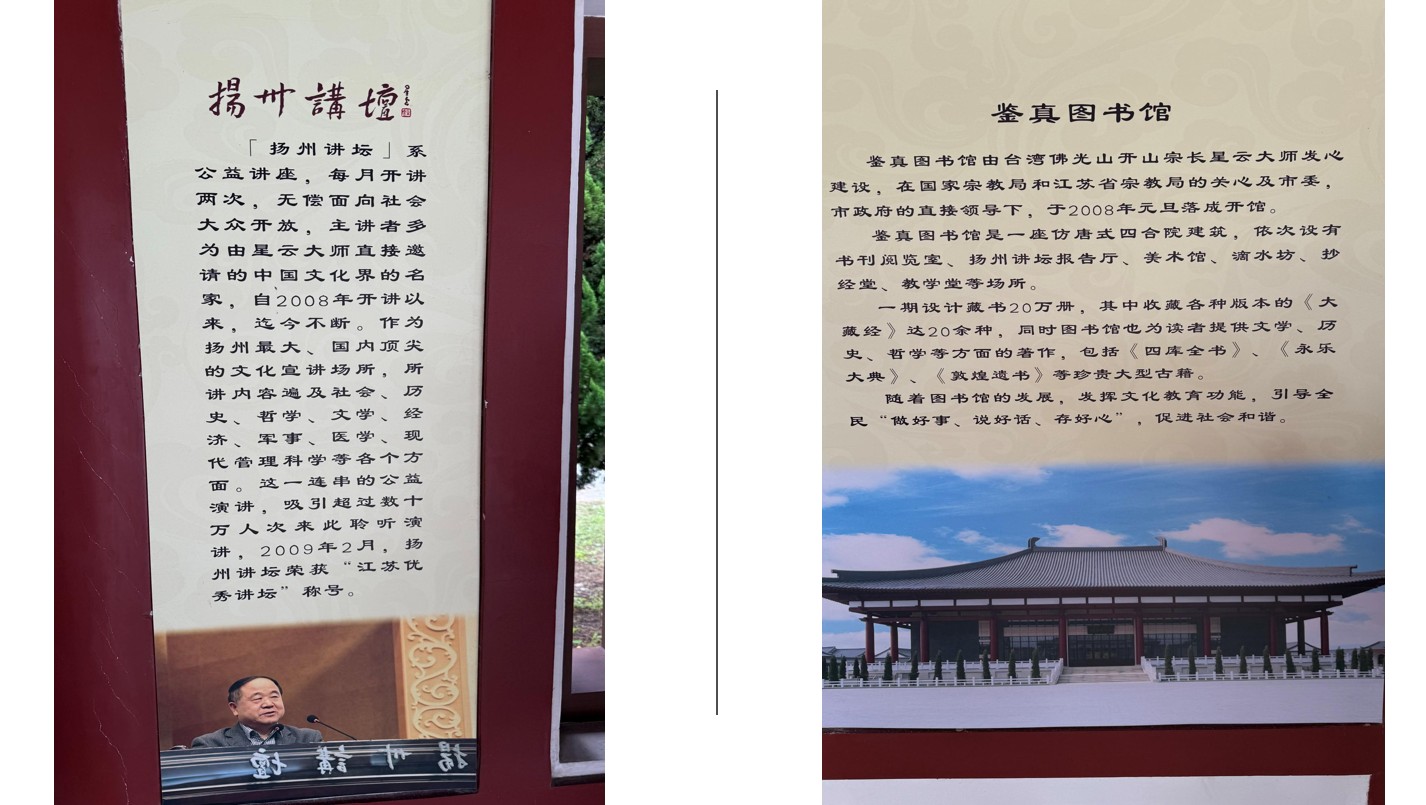 揚州講壇
「扬州讲坛」系
公益讲座，每月开讲
两次，无偿面向社会
大众开放，主讲者多
为由星云大师直接邀
请的中国文化界的名
家，自2008年开讲以
来，迄今不断。作为
扬州最大、国内顶尖
的文化宣讲场所，所
讲内容遍及社会、历
史、哲学、文学、经
济、军事、医学、现
代管理科学等各个方
面。这一连串的公益
演讲，吸引超过数十
万人次来此聆听演
讲，2009年2月，扬
州讲坛荣获“江苏优
秀讲坛”称号。
揚州講壇
鉴真图书馆
鉴真图书馆由台湾佛光山开山宗长星云大师发心
建设，在国家宗教局和江苏省宗教局的关心及市委，
市政府的直接领导下，于2008年元旦落成开馆。
鉴真图书馆是一座仿唐式四合院建筑，依次设有
书刊阅览室、扬州讲坛报告厅、美术馆、滴水坊、抄
经堂、教学堂等场所。
一期设计藏书20万册，其中收藏各种版本的《大
藏经》达20余种，同时图书馆也为读者提供文学、历
史、哲学等方面的著作，包括《四库全书》、《永乐
大典》、《敦煌遗书》等珍贵大型古籍。
随着图书馆的发展，发挥文化教育功能，引导全
民“做好事、说好话、存好心”，促进社会和谐。